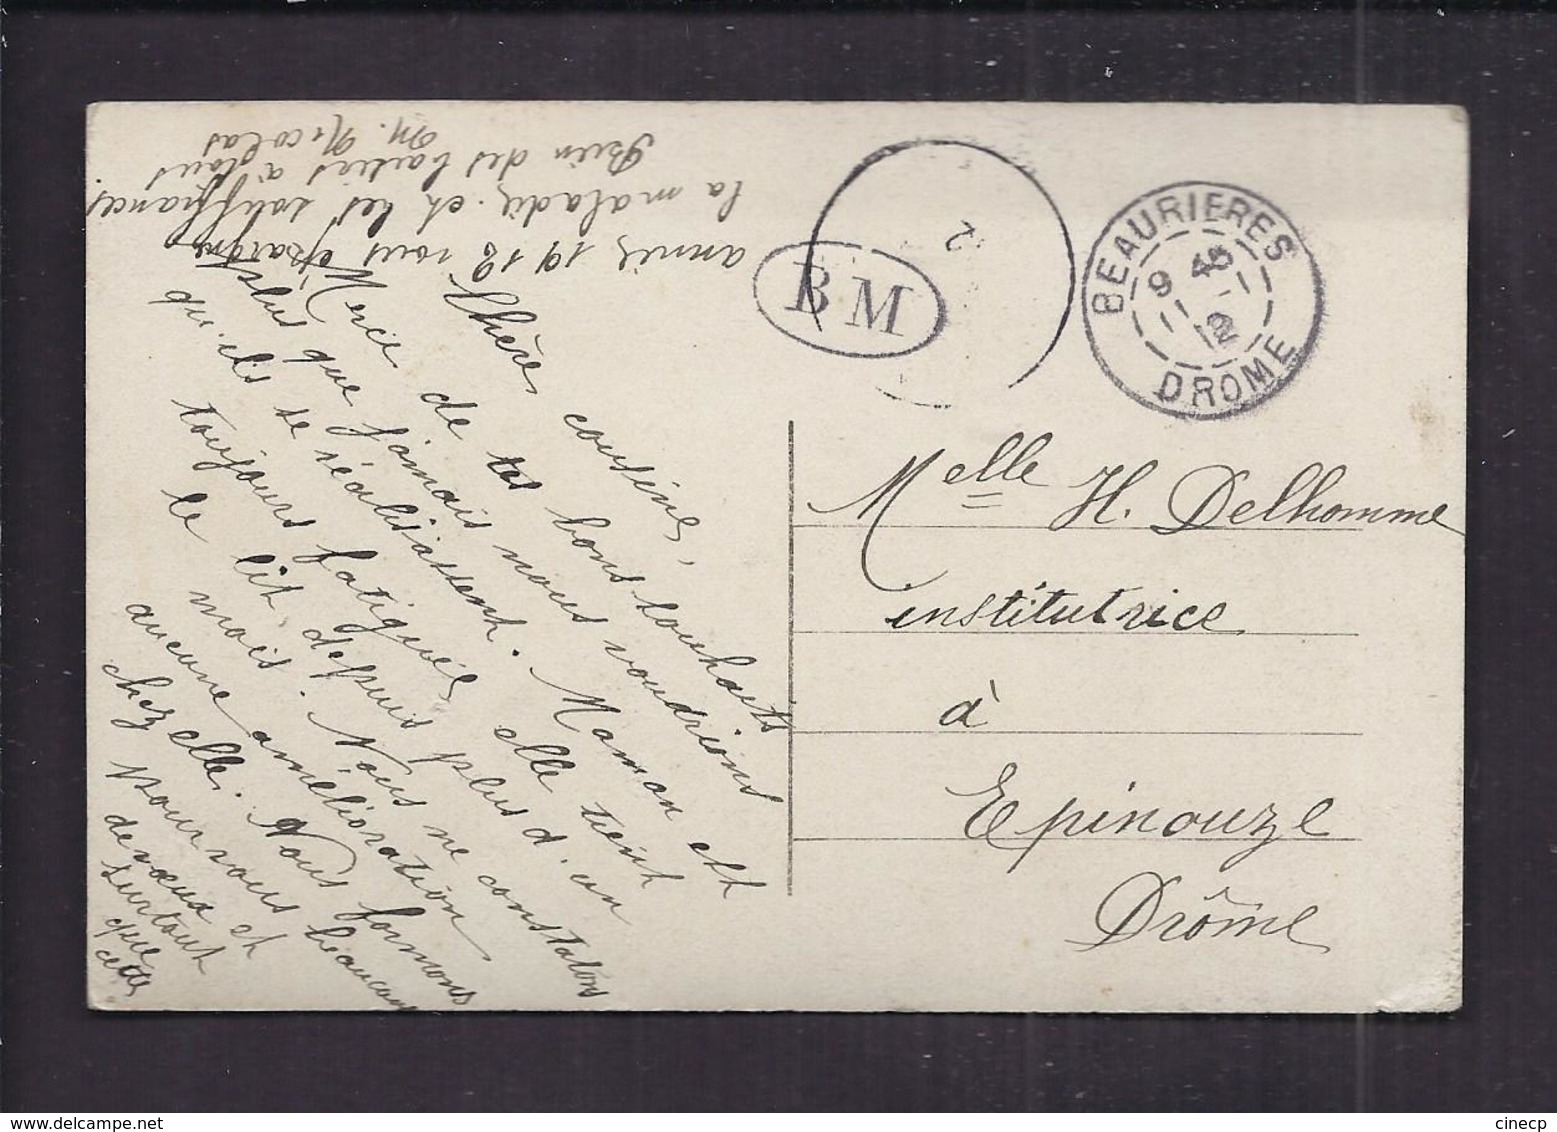 Chères cousines,
Merci de tes bons souhaits
plus que jamais nous voudrions
qu'ils se réalisassent. Maman est
toujours fatiguée, elle tient
le lit depuis plus d'un
mois. Nous ne constatons
aucune amélioration
chez elle. Nous formons
pour vous et beaucoup
de vœux
surtout
que
cette
année 1912 vous épargne
la maladie et les souffrances.
Bien des baisers à tous
M. Nicolas
BM
2
BEAURIERES
9 45
12
DROME
Melle H. Delhomme
institutrice
à
Epinouze
Drôme
www.delcampe.net
cinecp